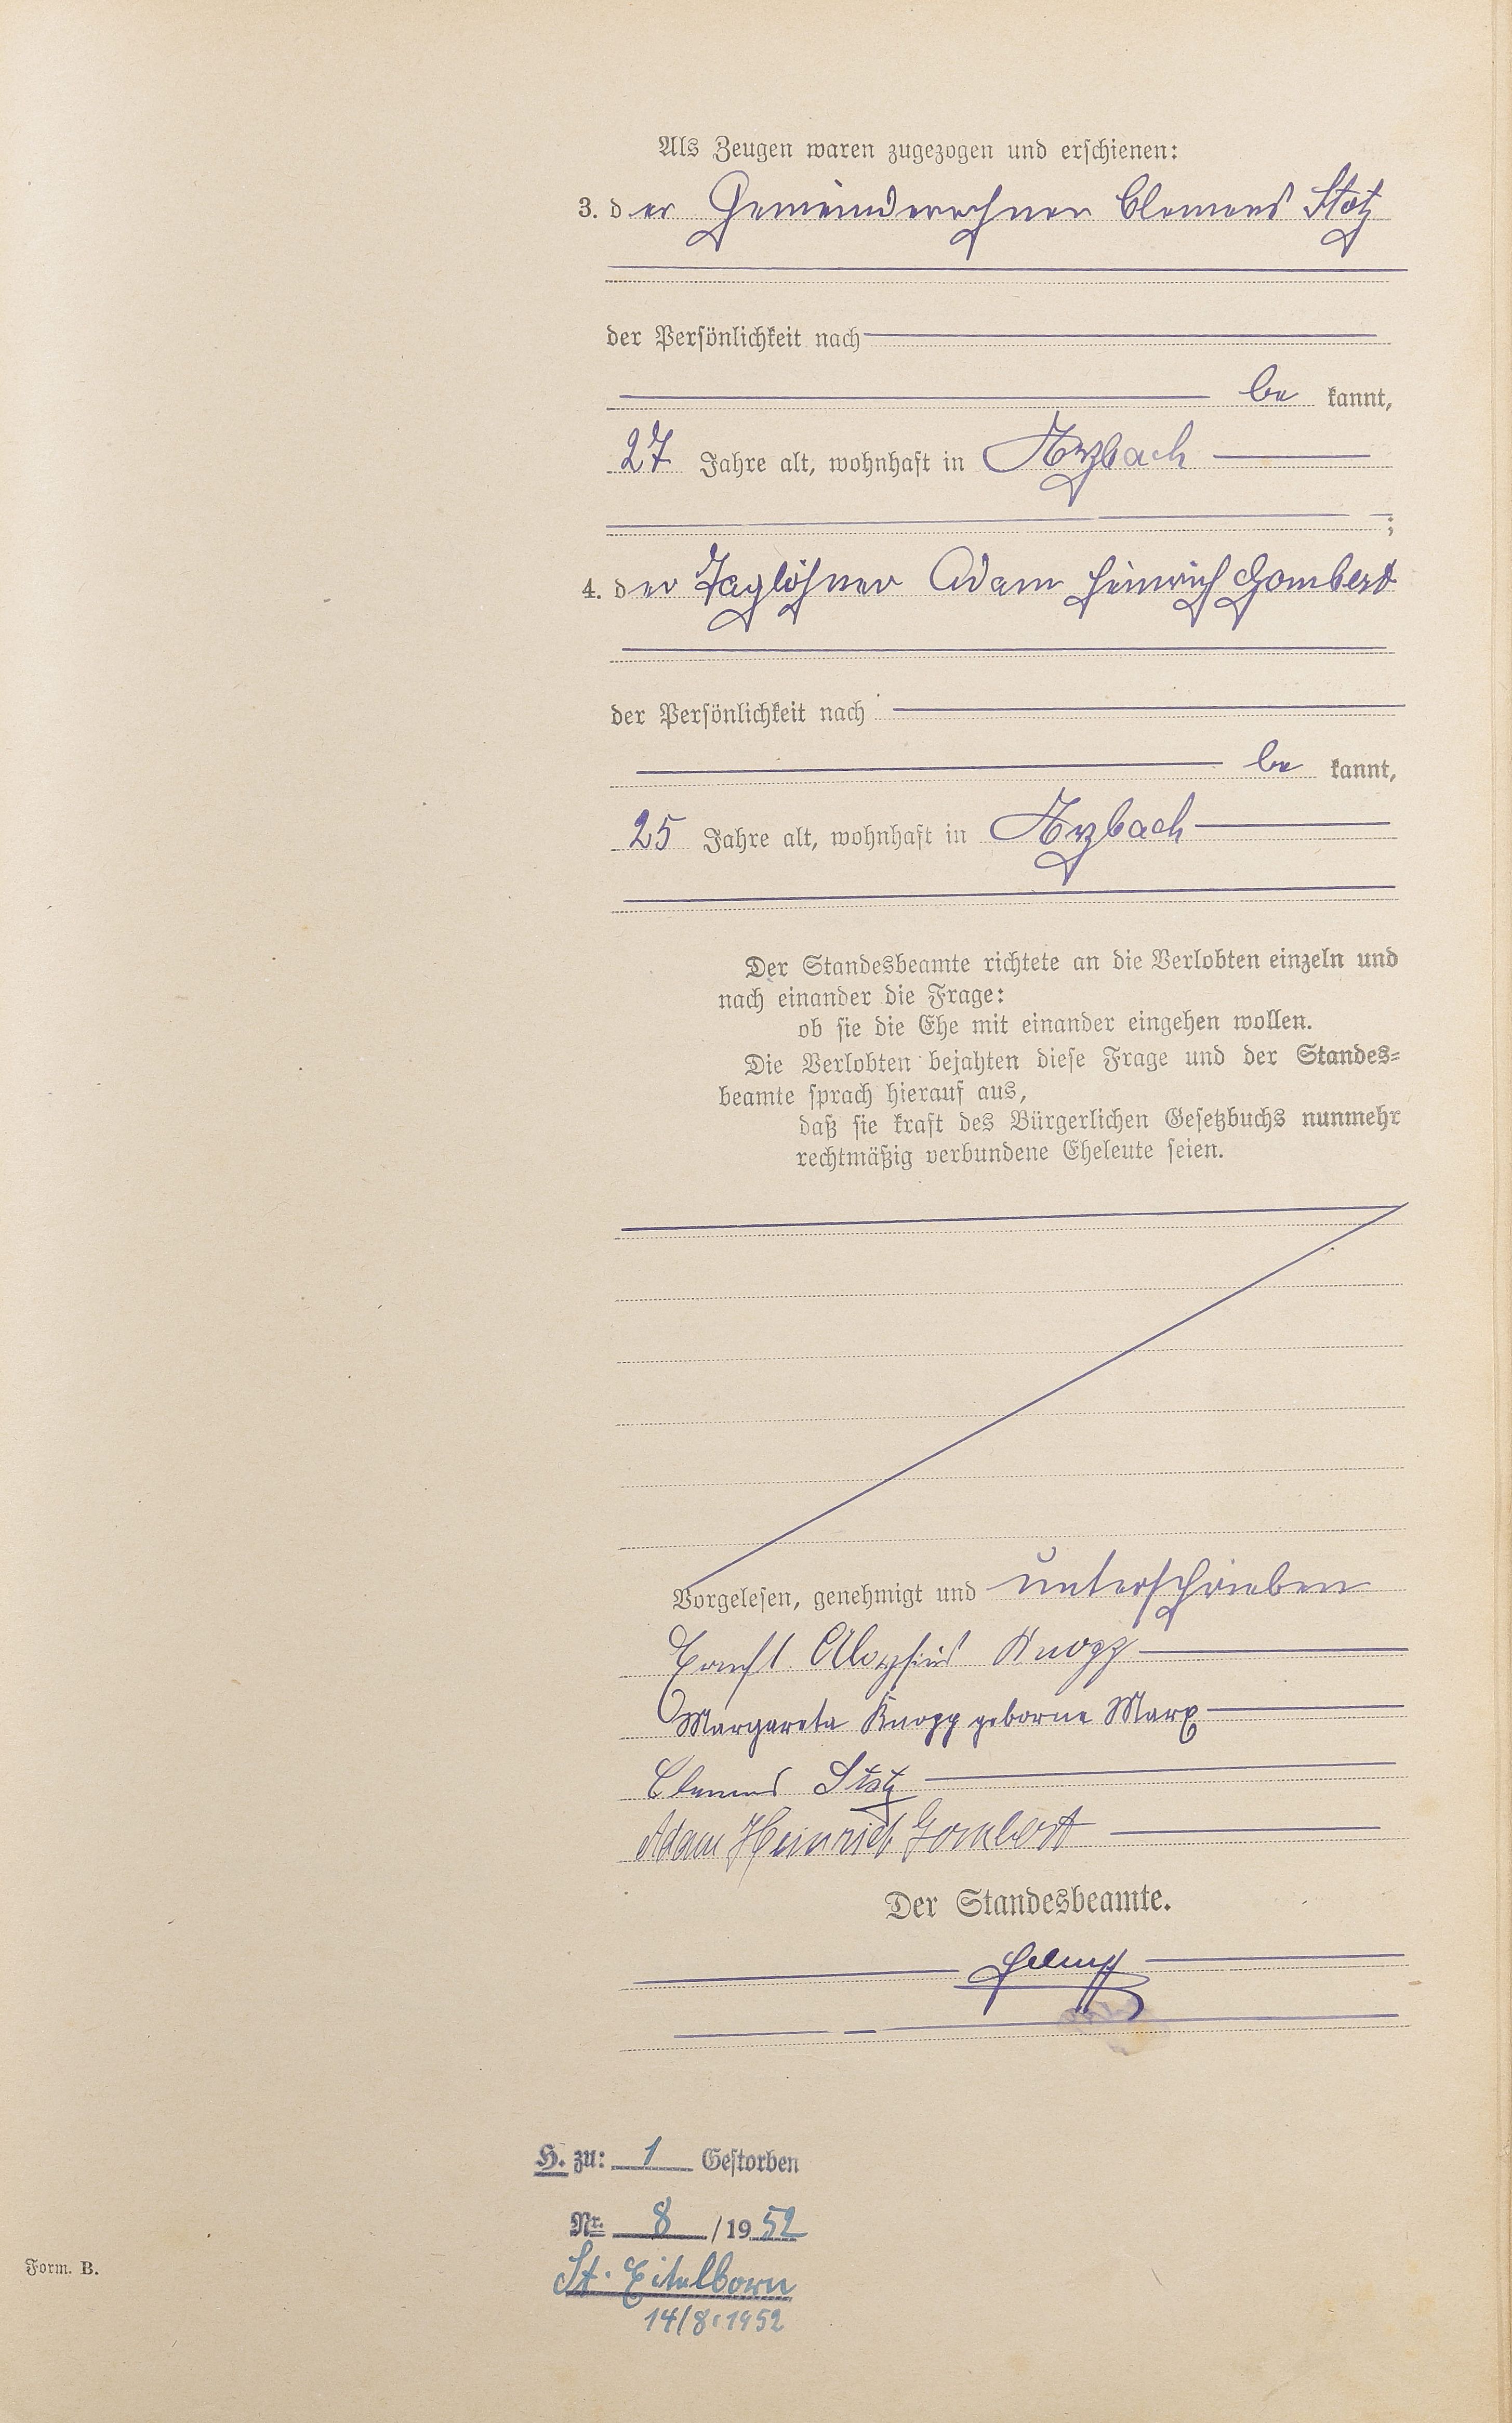 Als Zeugen waren zugezogen und erschienen:
3. der Gemeinderechner Clemens Stotz
der Persönlichkeit nach
be kannt,
27 Jahre alt, wohnhaft in Arzbach
;
4. der Taglöhner Adam Heinrich Gombert
der Persönlichkeit nach
be kannt,
25 Jahre alt, wohnhaft in Arzbach
Der Standesbeamte richtete an die Verlobten einzeln und
nach einander die Frage:
ob sie die Ehe mit einander eingehen wollen.
Die Verlobten bejahten diese Frage und der Standes-
beamte sprach hierauf aus,
daß sie kraft des Bürgerlichen Gesetzbuchs nunmehr
rechtmäßig verbundene Eheleute seien.
Vorgelesen, genehmigt und unterschrieben
Ernst Aloysius Knopp
Margareta Knopp geborne Marx
Clemens Stotz
Adam Heinrich Gombert
Der Standesbeamte.
H. zu: 1 Gestorben
Nr. 8 / 1952
St. Eitelborn
14/8.1952
Form. B.